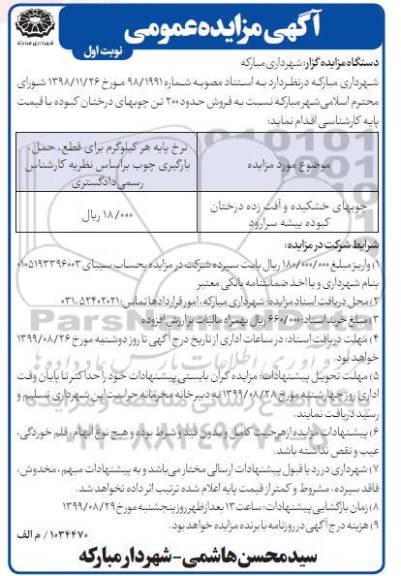 شهرداری مبارکه
آگهی مزایده عمومی
نوبت اول
دستگاه مزایده گزار: شهرداری مبارکه
شهرداری مبارکه درنظردارد به استناد مصوبه شماره ۹۸/۱۹۹۱ مورخ ۱۳۹۸/۱۱/۲۶ شورای
محترم اسلامی شهر مبارکه نسبت به فروش حدود ۲۰۰ تن چوبهای درختان کبوده با قیمت
پایه کارشناسی اقدام نماید:
موضوع مورد مزایده
نرخ پایه هر کیلوگرم برای قطع، حمل،
بارگیری چوب براساس نظریه کارشناس
رسمی دادگستری
چوبهای خشکیده و آفت زده درختان
کبوده بیشه سرارود
۱۸/۰۰۰ ریال
شرایط شرکت در مزایده:
۱) واریز مبلغ ۱۸۰/۰۰۰/۰۰۰ ریال بابت سپرده شرکت در مزایده بحساب سیبای ۰۱۰۵۱۹۳۳۹۶۰۰۳
بنام شهرداری و یا اخذ ضمانتنامه بانکی معتبر
۲) محل دریافت اسناد مزایده: شهرداری مبارکه، امور قراردادها تماس: ۰۳۱.۵۲۴۰۲۰۲۱
۳) مبلغ خرید اسناد: ۶۶۰/۰۰۰ ریال بهمراه مالیات بر ارزش افزوده
۴) مهلت دریافت اسناد: در ساعات اداری از تاریخ درج آگهی تا روز دوشنبه مورخ ۱۳۹۹/۰۸/۲۶
خواهد بود.
۵) مهلت تحویل پیشنهادات: مزایده گران بایستی پیشنهادات خود را حداکثر تا پایان وقت
اداری روز چهارشنبه مورخ ۱۳۹۹/۰۸/۲۸ به دبیرخانه محرمانه حراست این شهرداری تسلیم و
رسید دریافت نمایند.
۶) پیشنهادات مزایده از هر حیث کامل و بدون قید و شرط بوده و هیچ نوع ابهام، قلم خوردگی،
عیب و نقص نداشته باشد.
۷) شهرداری در رد یا قبول پیشنهادات ارسالی مختار می‌باشد و به پیشنهادات مبهم، مخدوش،
فاقد سپرده، مشروط و کمتر از قیمت پایه اعلام شده ترتیب اثر داده نخواهد شد.
۸) زمان بازگشایی پیشنهادات: ساعت ۱۳ بعد از ظهر روز پنجشنبه مورخ ۱۳۹۹/۰۸/۲۹
۹) هزینه درج آگهی در روزنامه با برنده مزایده خواهد بود.
۱۰۳۴۴۷۰ / م الف
سید محسن هاشمی - شهردار مبارکه